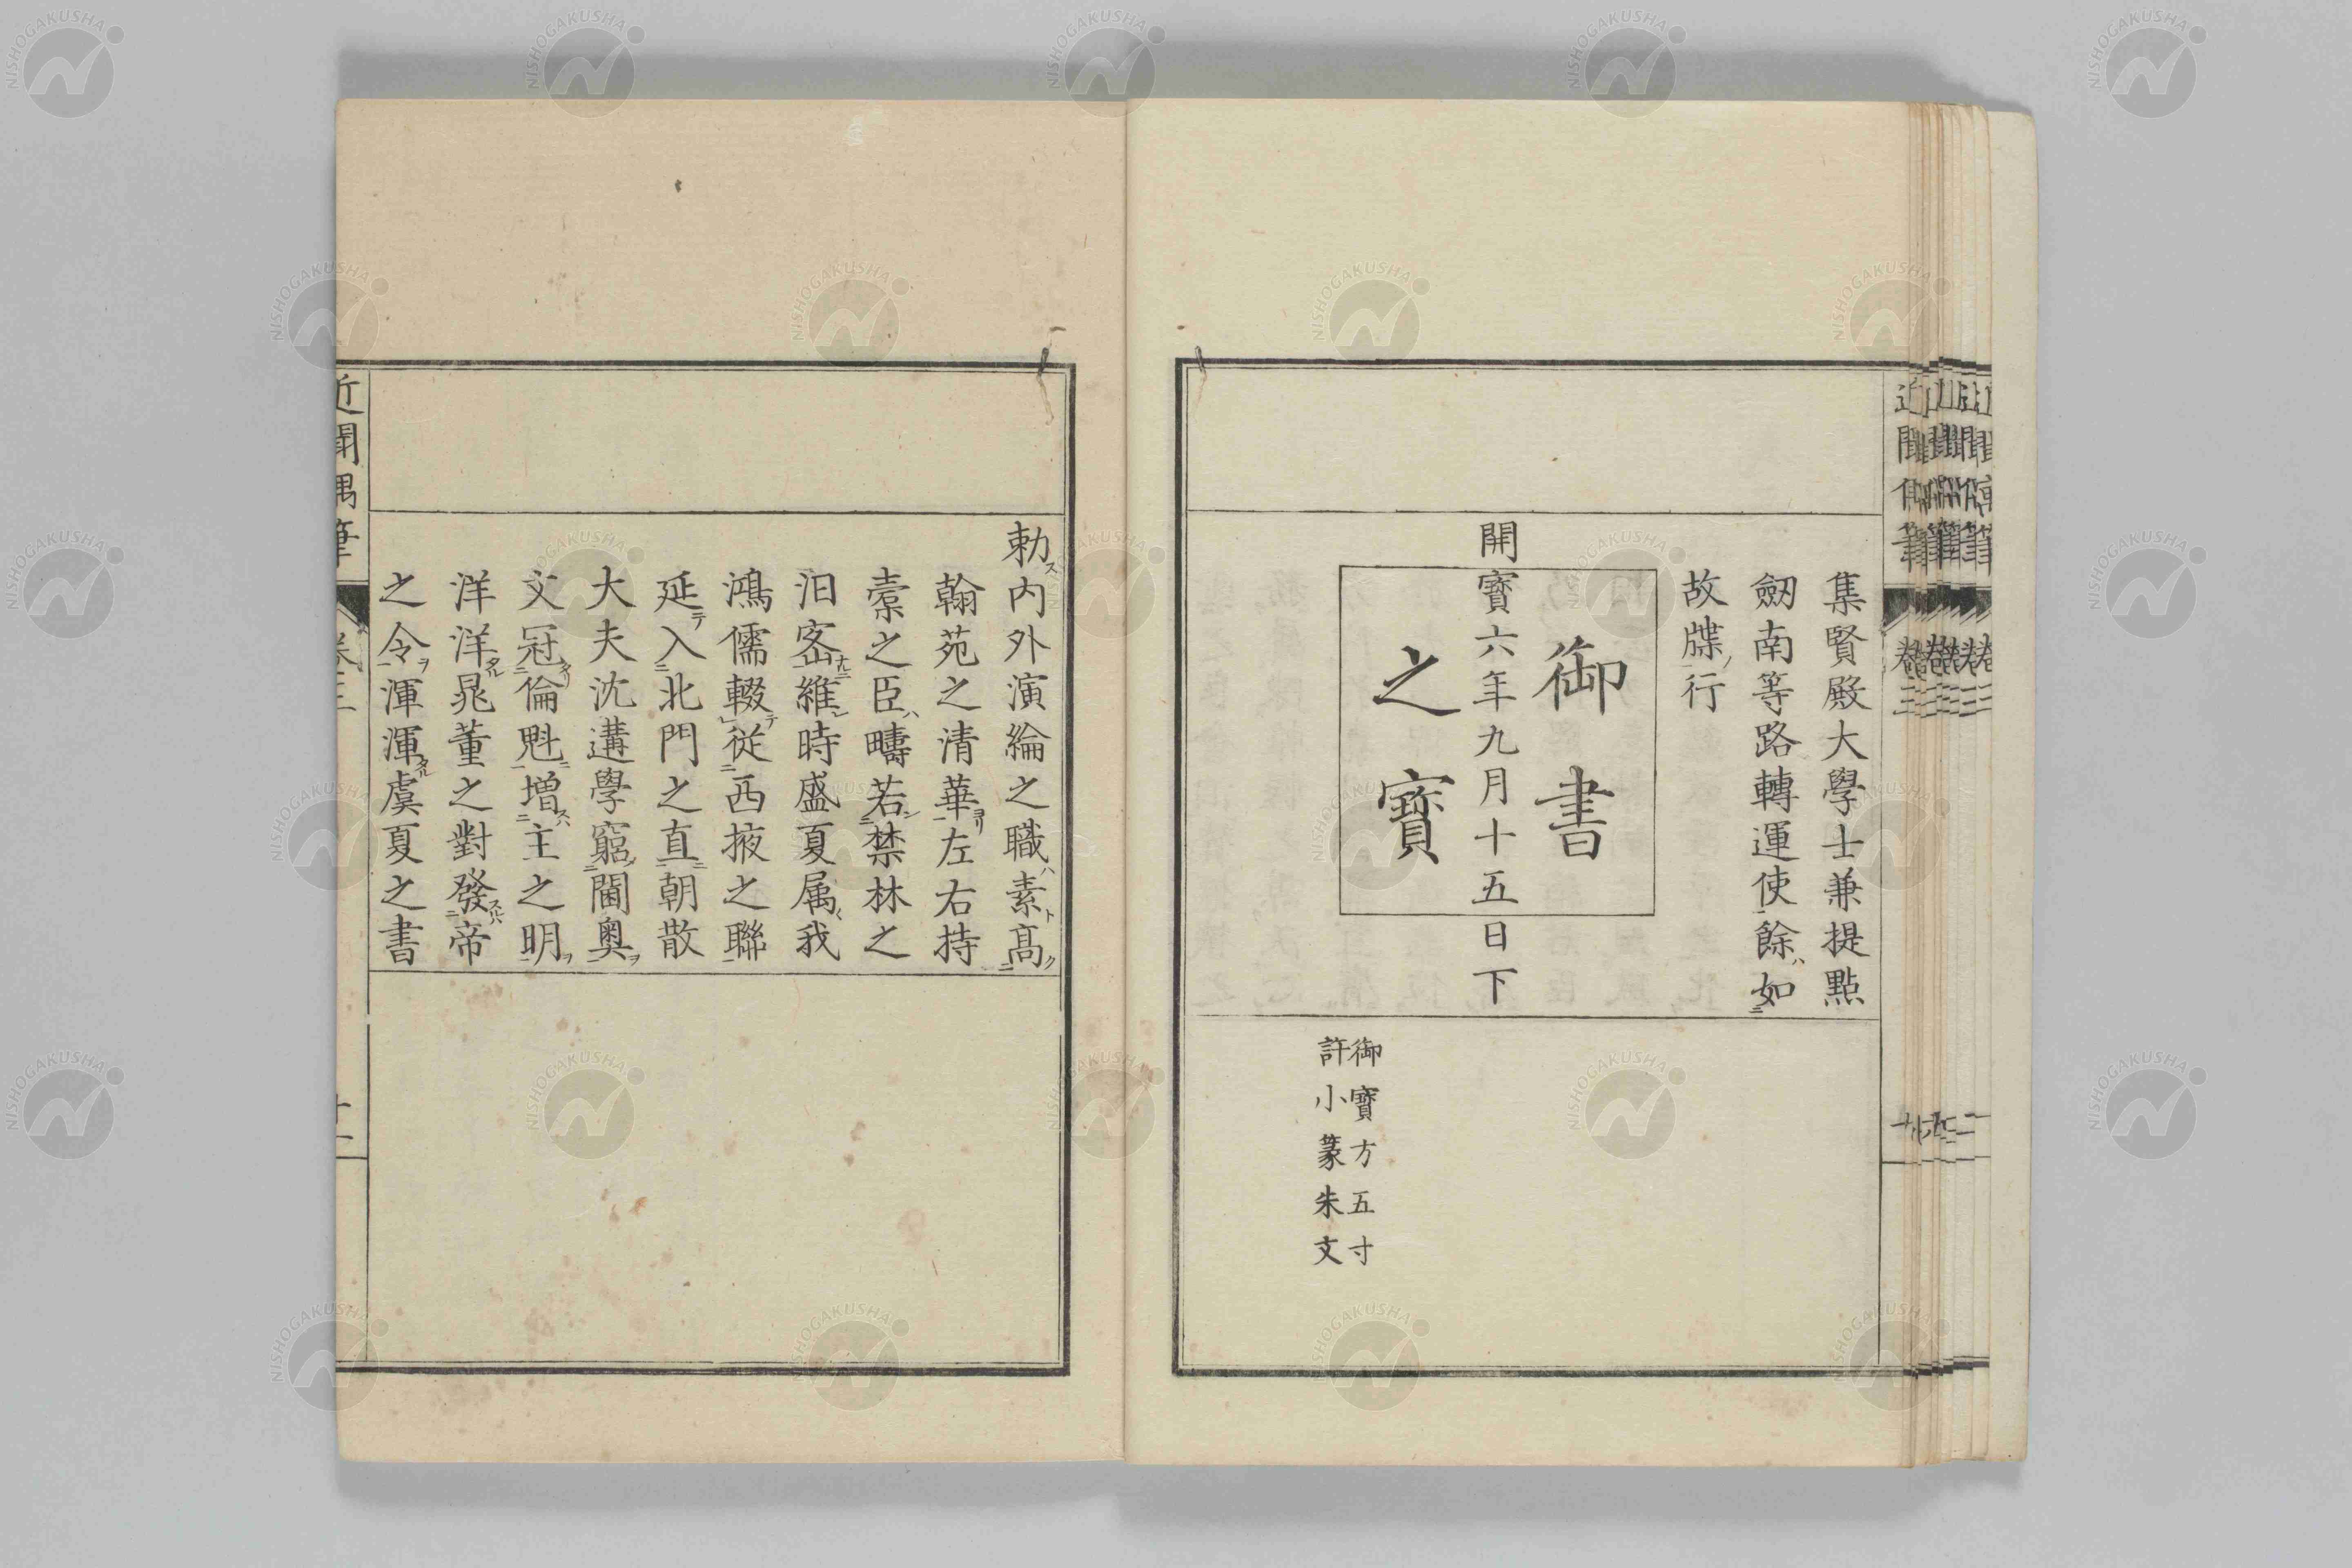 集賢殿大學士兼提點
劔南等路轉運使餘ハ如
故牒ノ行
御書
開寶六年九月十五日下
之寶
御寶方五寸
許小篆朱文
勅ス内外演綸之職ハ素ト高ク
翰苑之清華ヨリ左右持
橐之臣ハ疇若シ禁林之
汨
維時盛夏属我
鴻儒輟テ従西掖之聯
延テ入北門之直朝散
大夫沈遘學窮閫奥ヲ
文冠倫魁増主之明ヲ
洋洋タル晁董之對發スレハ帝
之令ヲ渾渾タル虞夏之書
近聞寓筆
卷三
十一
NISHOGAKUSHA